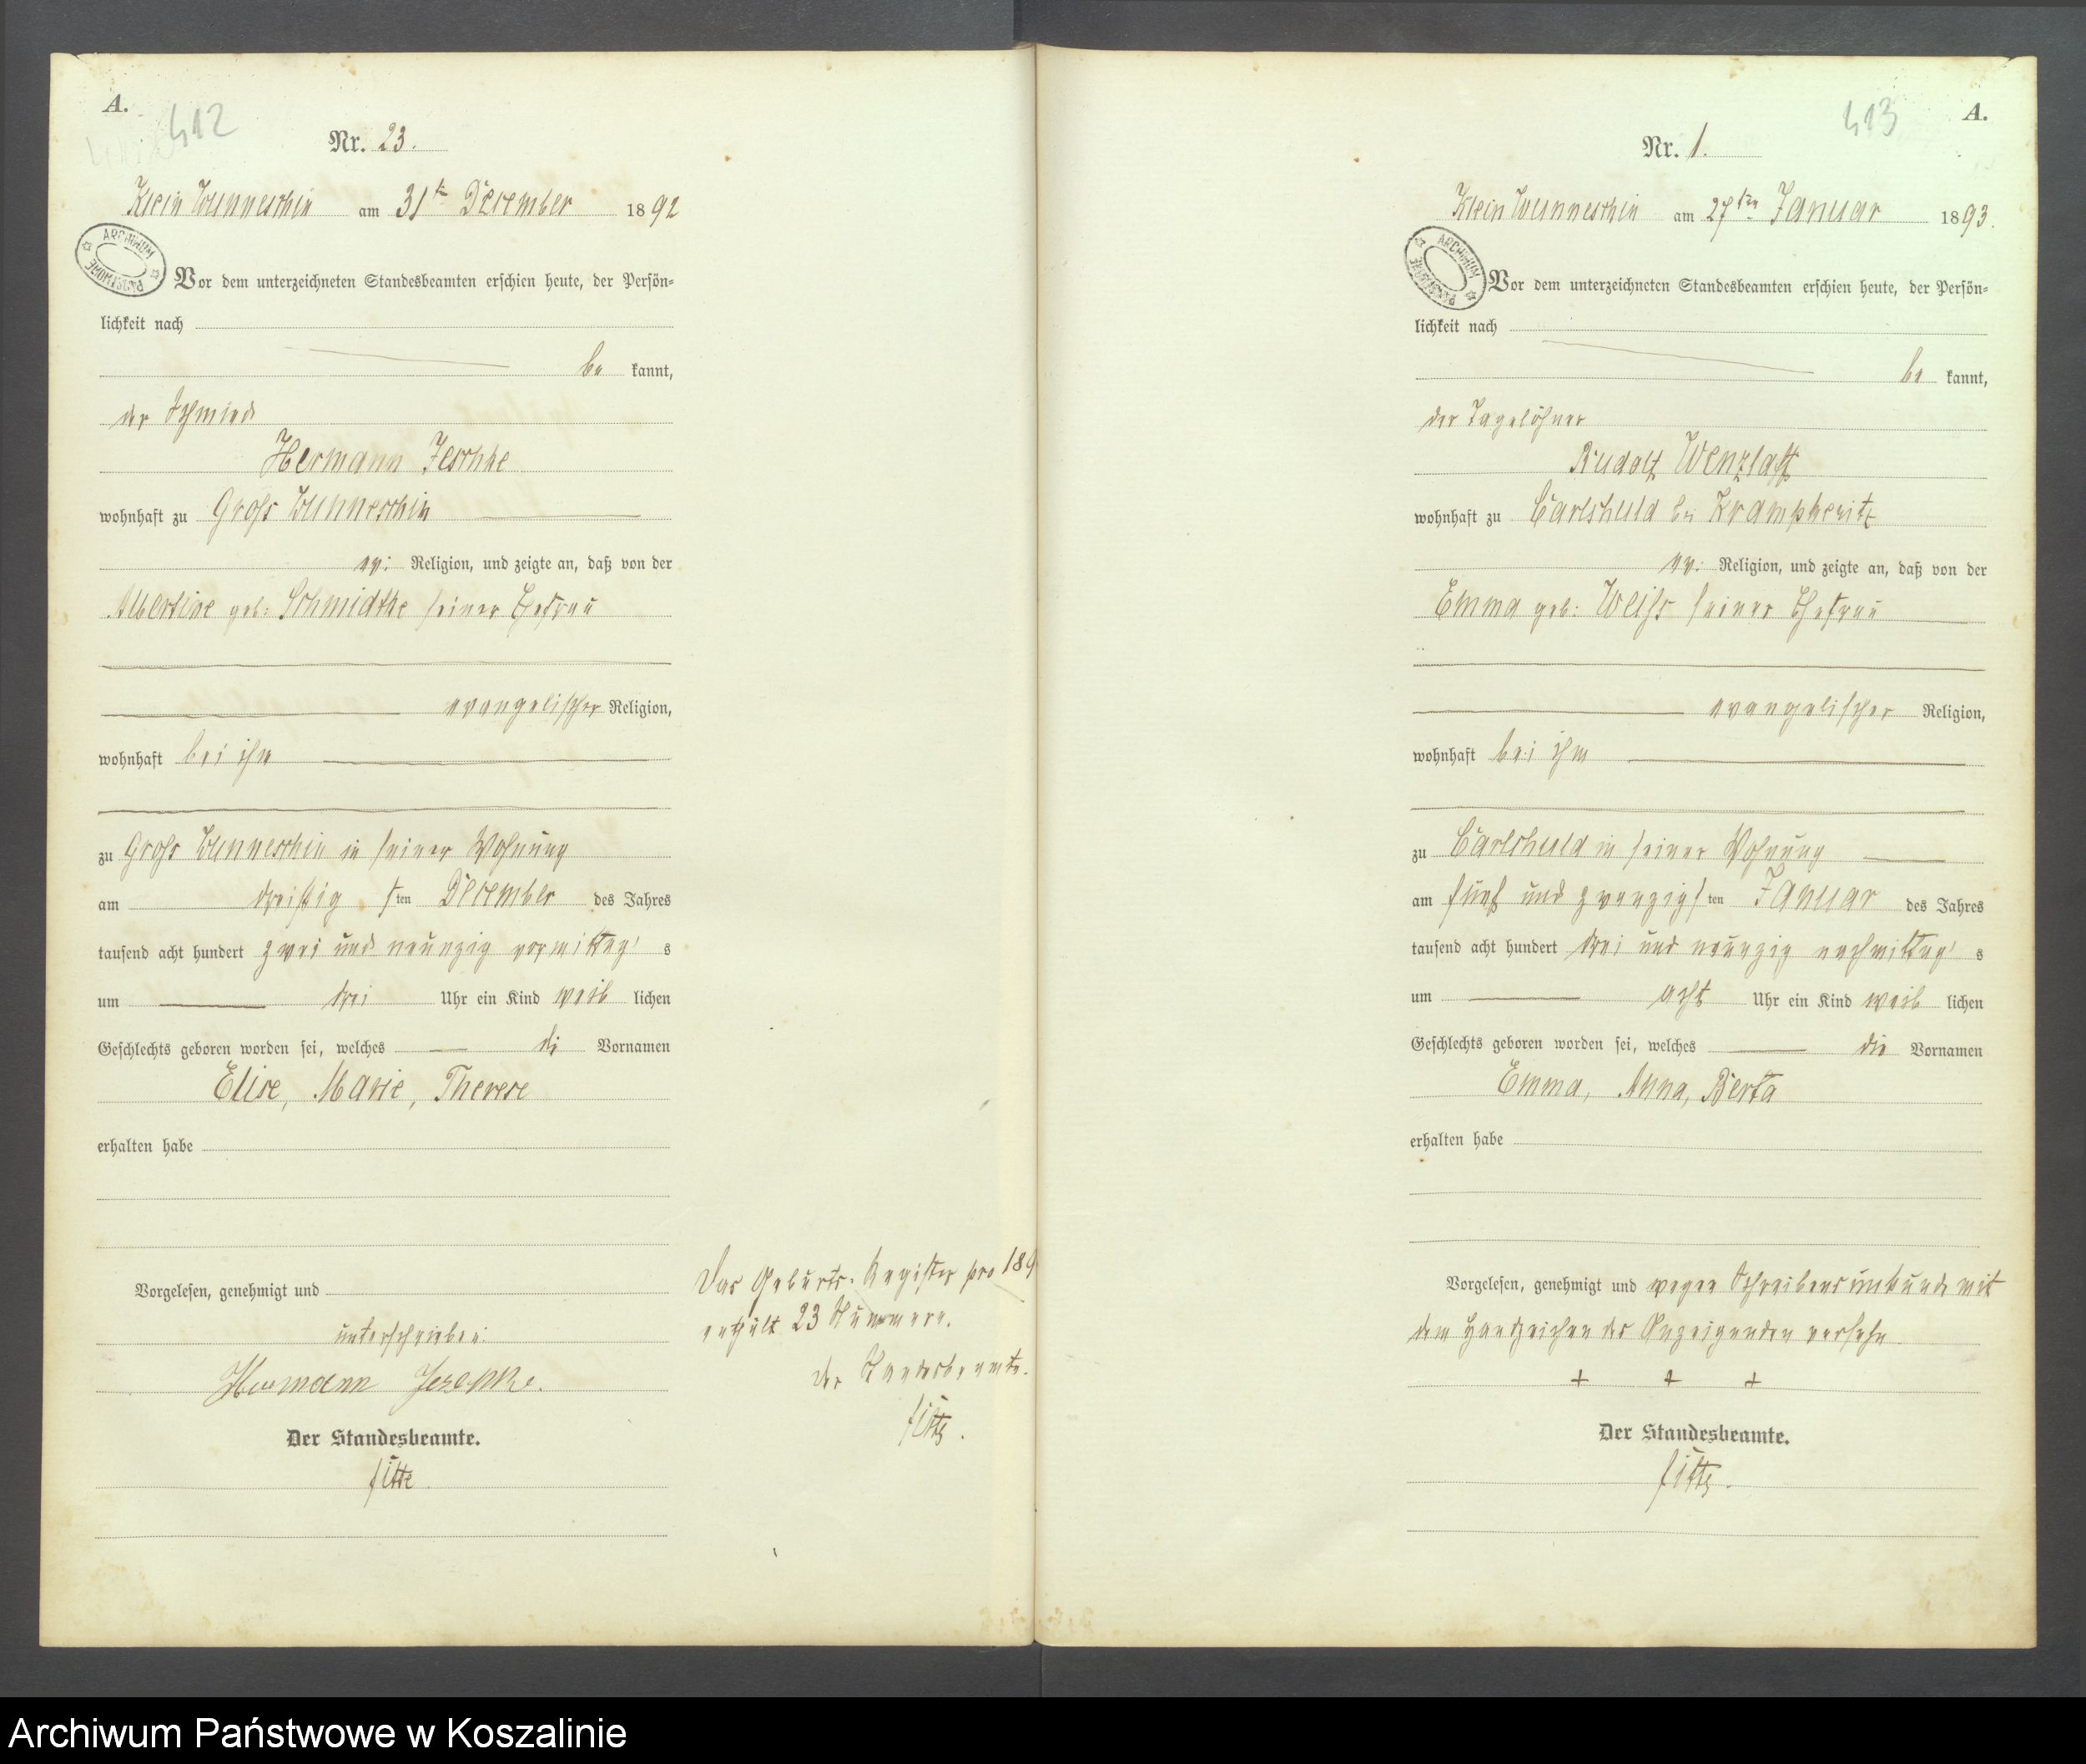 A.
412
Nr. 23.
Klein Wunneschin am 31t December 1892
ARCHIWUM PAŃSTWOWE
Vor dem unterzeichneten Standesbeamten erschien heute, der Persön-
lichkeit nach
be kannt,
der Schmied
Hermann Jeschke
wohnhaft zu Gross Wunneschin
ev: Religion, und zeigte an, daß von der
Albertine geb: Schmidtke seiner Ehefrau
evangelischer Religion,
wohnhaft bei ihm
zu Gross Wunneschin in seiner Wohnung
am dreißig sten December des Jahres
tausend acht hundert zwei und neunzig vormittag s
um drei Uhr ein Kind weib lichen
Geschlechts geboren worden sei, welches die Vornamen
Elise, Marie, Therese
erhalten habe
Vorgelesen, genehmigt und
unterschrieben
Hermann Jeschke.
Der Standesbeamte.
Das Geburts-Register pro 189
enthält 23 Nummern.
der Standesbeamte.
A.
413
Nr. 1.
Klein Wunneschin am 27ten Januar 1893.
ARCHIWUM PAŃSTWOWE
Vor dem unterzeichneten Standesbeamten erschien heute, der Persön-
lichkeit nach
be kannt,
der Tagelöhner
Rudolf Wenzlaff
wohnhaft zu Carlshuld bei Krampkewitz
ev: Religion, und zeigte an, daß von der
Emma geb: Weiss seiner Ehefrau
evangelischer Religion,
wohnhaft bei ihm
zu Carlshuld in seiner Wohnung
am fünf und zwanzigs ten Januar des Jahres
tausend acht hundert drei und neunzig nachmittag s
um acht Uhr ein Kind weib lichen
Geschlechts geboren worden sei, welches die Vornamen
Emma, Anna, Berta
erhalten habe
Vorgelesen, genehmigt und wegen Schreibensunkunde mit
dem Handzeichen des Anzeigenden versehn
+ + +
Der Standesbeamte.
Archiwum Państwowe w Koszalinie